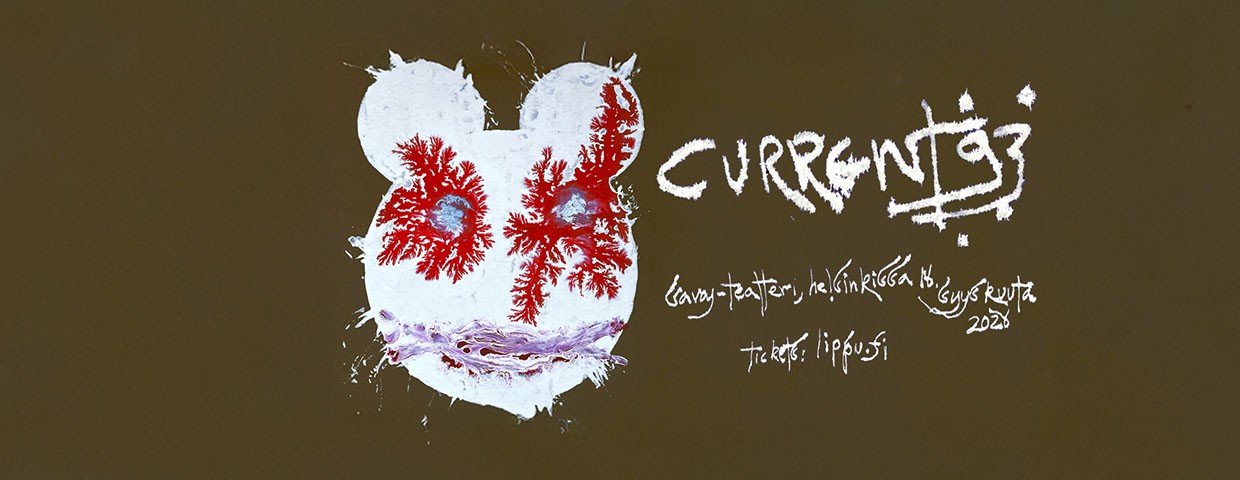 CURRENT 93
savoy-teatteri, helsinkissa syyskuuta
2026
tickets: lippu.fi